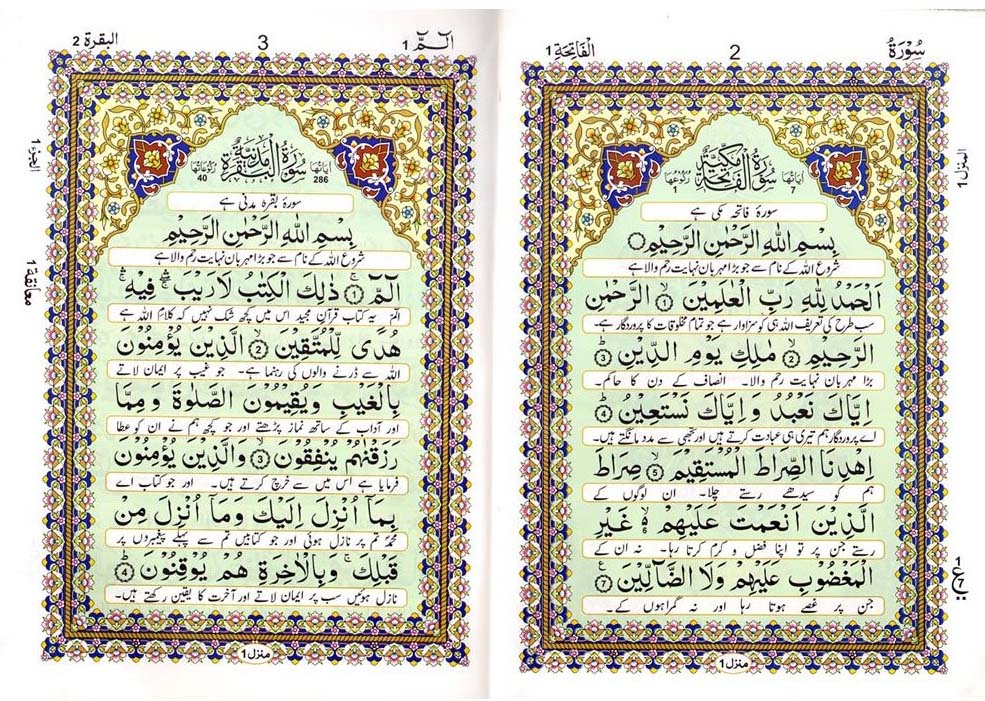 سُوْرَةُ
2
اَلْفَاتِحَة 1
المنزل 1
سُوْرَةُ الْفَاتِحَةِ مَكِّيَّةٌ
اٰيَاتُهَا 7
رُكُوْعُهَا 1
سورۂ فاتحہ مکی ہے
بِسْمِ اللهِ الرَّحْمٰنِ الرَّحِيْمِ
شروع اللہ کے نام سے جو بڑا مہربان نہایت رحم والا ہے
اَلْحَمْدُ لِلّٰهِ رَبِّ الْعٰلَمِيْنَ ۙ﴿1﴾ الرَّحْمٰنِ
سب طرح کی تعریف اللہ ہی کو سزاوار ہے جو تمام مخلوقات کا پروردگار ہے۔
الرَّحِيْمِ ۙ﴿2﴾ مٰلِكِ يَوْمِ الدِّيْنِ ؕ﴿3﴾
بڑا مہربان نہایت رحم والا۔ انصاف کے دن کا حاکم۔
اِيَّاكَ نَعْبُدُ وَاِيَّاكَ نَسْتَعِيْنُ ؕ﴿4﴾
اے پروردگار ہم تیری ہی عبادت کرتے ہیں اور تجھی سے مدد مانگتے ہیں۔
اِهْدِنَا الصِّرَاطَ الْمُسْتَقِيْمَ ۙ﴿5﴾ صِرَاطَ
ہم کو سیدھے رستے چلا۔ ان لوگوں کے
الَّذِيْنَ اَنْعَمْتَ عَلَيْهِمْ ۙ6 غَيْرِ
رستے جن پر تو اپنا فضل و کرم کرتا رہا۔ نہ ان کے
الْمَغْضُوْبِ عَلَيْهِمْ وَلَا الضَّآلِّيْنَ ﴿7﴾
جن پر غصے ہوتا رہا اور نہ گمراہوں کے۔
ع
منزل 1
الٓـمّٓ 1
3
البقرة 2
الجزء 1
معانقة 1
سُوْرَةُ الْبَقَرَةِ مَدَنِيَّةٌ
اٰيَاتُهَا 286
رُكُوْعَاتُهَا 40
سورۂ بقرہ مدنی ہے
بِسْمِ اللهِ الرَّحْمٰنِ الرَّحِيْمِ
شروع اللہ کے نام سے جو بڑا مہربان نہایت رحم والا ہے
الٓمّٓ ۚ﴿1﴾ ذٰلِكَ الْكِتٰبُ لَا رَيْبَ ۛۖ فِيْهِ ۛۚ
الم یہ کتاب قرآن مجید اس میں کچھ شک نہیں کہ کلام اللہ ہے
هُدًى لِّلْمُتَّقِيْنَ ۙ﴿2﴾ الَّذِيْنَ يُؤْمِنُوْنَ
اللہ سے ڈرنے والوں کی رہنما ہے۔ جو غیب پر ایمان لاتے
بِالْغَيْبِ وَيُقِيْمُوْنَ الصَّلٰوةَ وَمِمَّا
اور آداب کے ساتھ نماز پڑھتے اور جو کچھ ہم نے ان کو عطا
رَزَقْنٰهُمْ يُنْفِقُوْنَ ۙ﴿3﴾ وَالَّذِيْنَ يُؤْمِنُوْنَ
فرمایا ہے اس میں سے خرچ کرتے ہیں۔ اور جو کتاب اے
بِمَآ اُنْزِلَ اِلَيْكَ وَمَآ اُنْزِلَ مِنْ
محمدؐ تم پر نازل ہوئی اور جو کتابیں تم سے پہلے پیغمبروں پر
قَبْلِكَ ۚ وَبِالْاٰخِرَةِ هُمْ يُوْقِنُوْنَ ؕ﴿4﴾
نازل ہوئیں سب پر ایمان لاتے اور آخرت کا یقین رکھتے ہیں۔
منزل 1